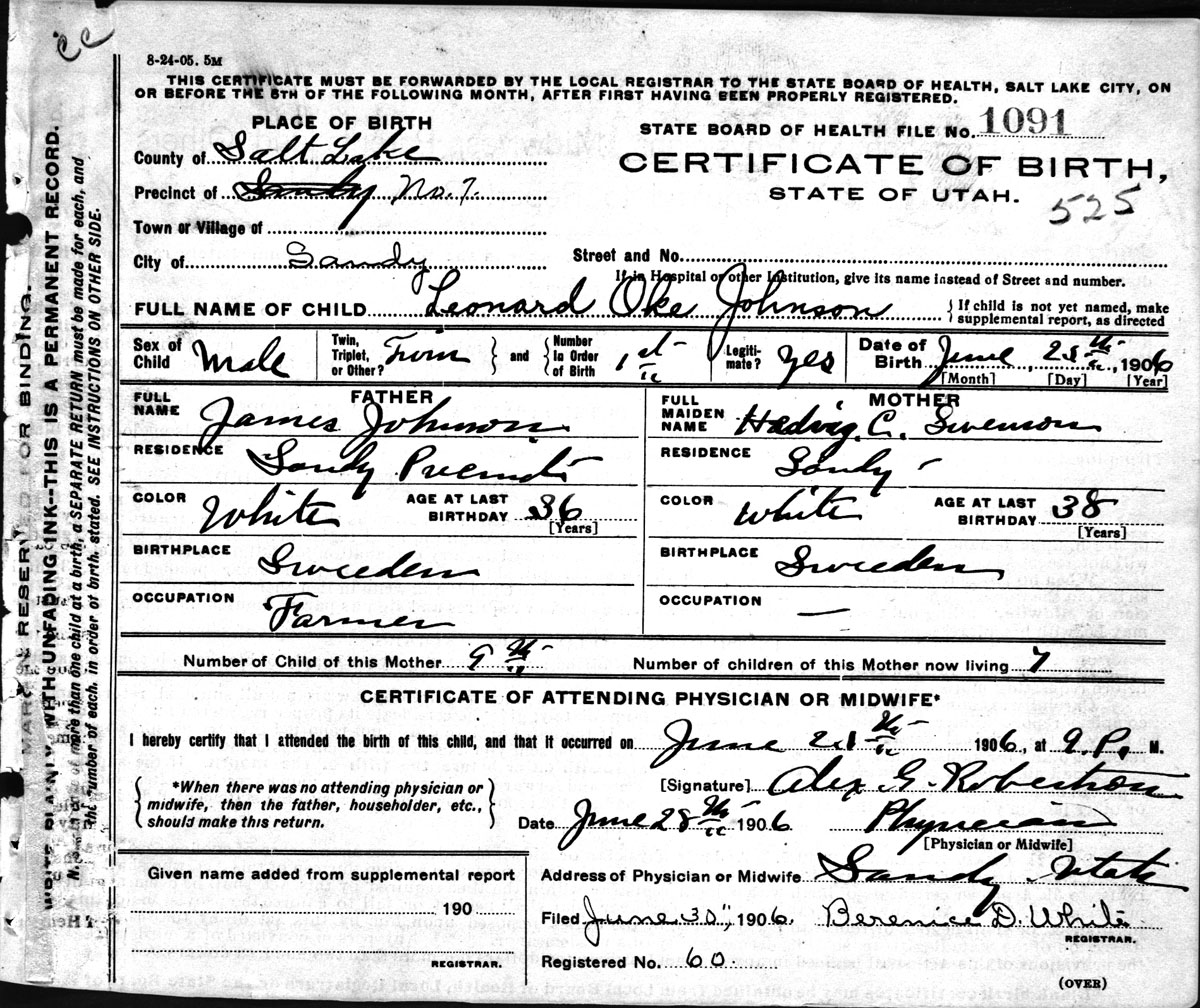 cc
8-24-05. 5M
THIS CERTIFICATE MUST BE FORWARDED BY THE LOCAL REGISTRAR TO THE STATE BOARD OF HEALTH, SALT LAKE CITY, ON
OR BEFORE THE 5TH OF THE FOLLOWING MONTH, AFTER FIRST HAVING BEEN PROPERLY REGISTERED.
PLACE OF BIRTH
STATE BOARD OF HEALTH FILE No. 1091
County of Salt Lake
CERTIFICATE OF BIRTH,
Precinct of Sandy No. 7.
STATE OF UTAH.
525
Town or Village of
City of Sandy
Street and No.
If in Hospital or other Institution, give its name instead of Street and number.
FULL NAME OF CHILD Leonard Oke Johnson
{ If child is not yet named, make
supplemental report, as directed
Sex of Child Male
Twin, Triplet, or Other? Twin
and
Number In Order of Birth 1st
Legiti-mate? yes
Date of Birth June, , 1906
[Month] [Day] [Year]
FATHER
FULL NAME James Johnson
RESIDENCE Sandy Precinct
COLOR White
AGE AT LAST BIRTHDAY 36
[Years]
BIRTHPLACE Sweeden
OCCUPATION Farmer
MOTHER
FULL MAIDEN NAME Hedvig. C. Swenson
RESIDENCE Sandy
COLOR White
AGE AT LAST BIRTHDAY 38
[Years]
BIRTHPLACE Sweeden
OCCUPATION —
Number of Child of this Mother 9th
Number of children of this Mother now living 7
CERTIFICATE OF ATTENDING PHYSICIAN OR MIDWIFE*
I hereby certify that I attended the birth of this child, and that it occurred on June 1906, at 9. P. M.
{ *When there was no attending physician or
midwife, then the father, householder, etc.,
should make this return. }
[Signature] Alex G. Robertson
Date June 28th 1906. Physician
[Physician or Midwife]
Given name added from supplemental report
190
REGISTRAR.
Address of Physician or Midwife Sandy Utah
Filed June 30, 1906. Berenice D. White
REGISTRAR.
Registered No. 60.
(OVER)
MARGIN RESERVED FOR BINDING.
WRITE PLAINLY WITH UNFADING INK--THIS IS A PERMANENT RECORD.
N. B.--In case of more than one child at a birth, a SEPARATE RETURN must be made for each, and
the number of each, in order of birth, stated. SEE INSTRUCTIONS ON OTHER SIDE.